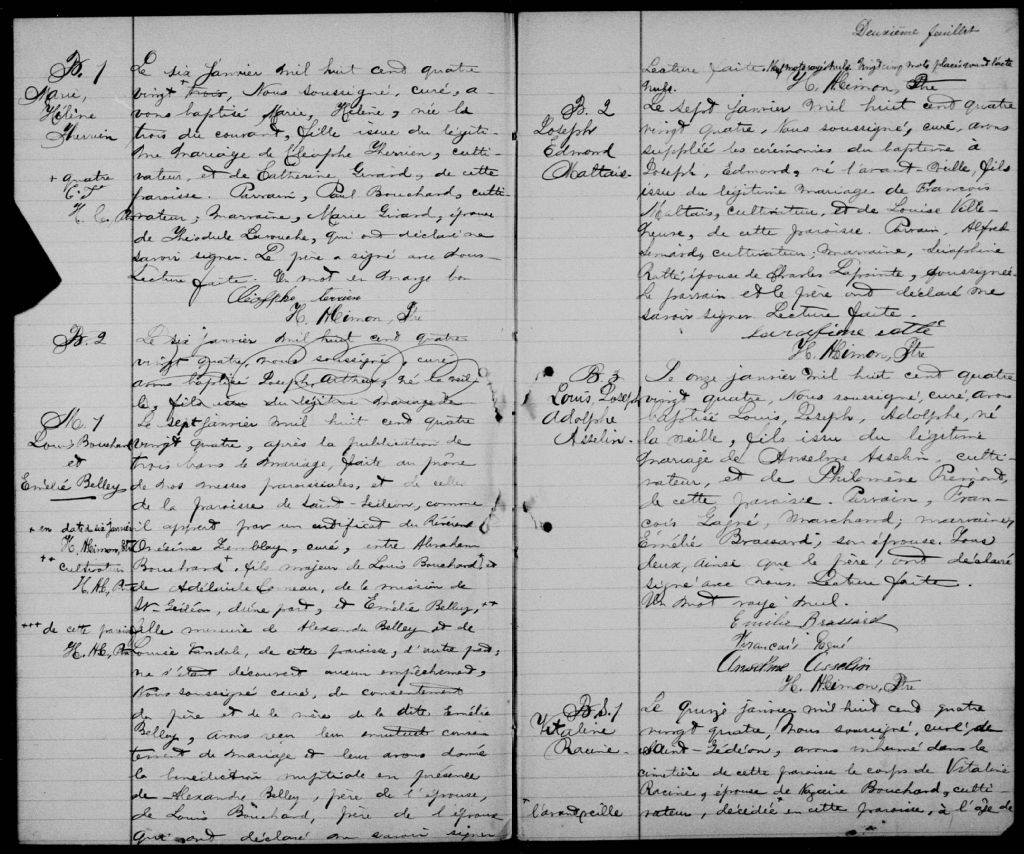 B. 1
Marie,
Hélène
Therrien
+ quatre
C. T.
Le six janvier mil huit cent quatre
vingt + trois, Nous soussigné, curé, a-
vons baptisé Marie, Hélène, née le
trois du courant, fille issue du légiti-
me mariage de Cléophe Therrien, culti-
vateur, et de Catherine Girard, de cette
paroisse. Parrain, Paul Bouchard, culti-
vateur, Marraine, Marie Girard, épouse
de Théodule Larouche, qui ont déclaré ne
savoir signer. Le père a signé avec nous.
Lecture faite. Un mot en marge bon
H. Kimon, Ptre
B. 2
Le six janvier mil huit cent quatre
vingt quatre, nous soussigné, curé
avons baptisé Joseph, Arthur, né la veil-
le, fils issu du légitime mariage de
M. 1
Louis Bouchard
et
Emélie Belley
+ en date six janvier
++ cultivateur
+++ de cette paroisse
Le sept janvier mil huit cent quatre
vingt quatre, après la publication de
trois bans de mariage, faite au prône
de nos messes paroissiales, et de celles
de la paroisse de Saint-Gédéon, comme
il appert par un certificat du Révérend
Onésime Tremblay, curé, entre Abraham
Bouchard, fils majeur de Louis Bouchard, et
de Adélaïde, de la mission de
St-Gédéon, d'une part, et Emélie Belley, ++
fille mineure de Alexandre Belley et de
Louise Vandal, de cette paroisse, d'autre part;
ne s'étant découvert aucun empêchement,
Nous soussigné curé, du consentement
du père et de la mère de la dite Emélie
Belley, avons reçu leur mutuel consen-
tement de mariage et leur avons donné
la bénédiction nuptiale en présence
de Alexandre Belley, père de l'épouse,
de Louis Bouchard, père de l'époux
qui ont déclaré ne savoir signer
Deuxième feuillet
Lecture faite. Neuf mots rayés nuls. Vingt cinq mots placés avant l'acte
nuls.
H. Kimon, Ptre
B. 2
Joseph
Edmond
Maltais
Le sept janvier mil huit cent quatre
vingt quatre, Nous soussigné, curé, avons
suppléé les cérémonies du baptême à
Joseph, Edmond, né l'avant-veille, fils
issu du légitime mariage de François
Maltais, cultivateur, et de Louise Ville-
neuve, de cette paroisse. Parrain, Alfred
Simard, cultivateur; marraine, Séraphine
Ratté, épouse de Charles Lapointe, soussignée
Le parrain et le père ont déclaré ne
savoir signer. Lecture faite.
H. Kimon, Ptre
B. 3
Louis, Joseph
Adolphe
Asselin
Le onze janvier mil huit cent quatre
vingt quatre, Nous soussigné, curé, avons
baptisé Louis, Joseph, Adolphe, né
la veille, fils issu du légitime
mariage de Anselme Asselin, culti-
vateur, et de Philomène,
de cette paroisse. Parrain, Fran-
çois Gagné, Marchand; marraine,
Emélie Brassard, son épouse. Tous
deux, ainsi que le père, ont déclaré
signé avec nous. Lecture faite.
Un mot rayé nul.
Emélie Brassard
François Gagné
Anselme Asselin
H. Kimon, Ptre
B.S. 1
Vitaline
Racine
+
l'avant veille
Le quinze janvier mil huit cent quatre
vingt quatre, Nous soussigné, curé, de
Saint-Gédéon, avons inhumé dans le
cimetière de cette paroisse le corps de Vitaline
Racine, épouse de Nazaire Bouchard, culti-
vateur, décédée + en cette paroisse, à l'âge de